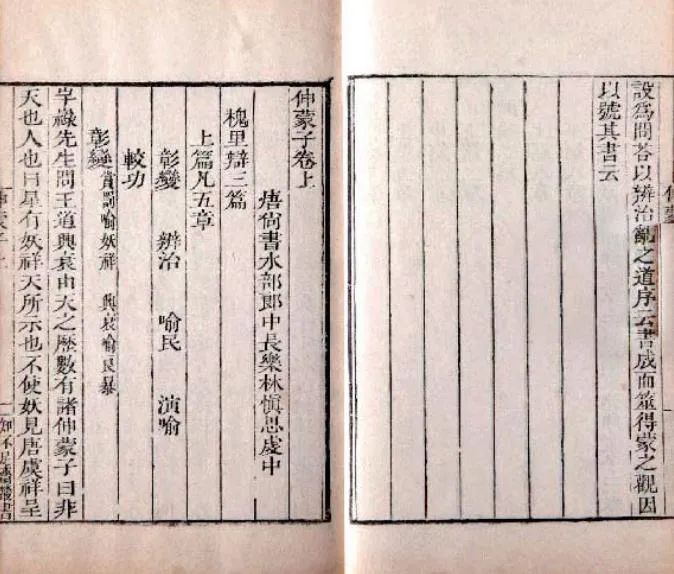 設爲問荅以辨治亂之道序云書成而筮得蒙之觀因
以號其書云
伸蒙
伸蒙子卷上
唐尚書水部郎中長樂林愼思虔中
槐里辯三篇
上篇凡五章
彰變　辨治　喻民　演喻
較功
彰變 賞罰喻妖祥　興衰喻民暴
芉祿先生問王道興衰由天之歷數有諸伸蒙子曰非
天也人也日星有妖祥天所示也不使妖見唐虞祥呈
伸蒙子上
一
知不足齋叢書